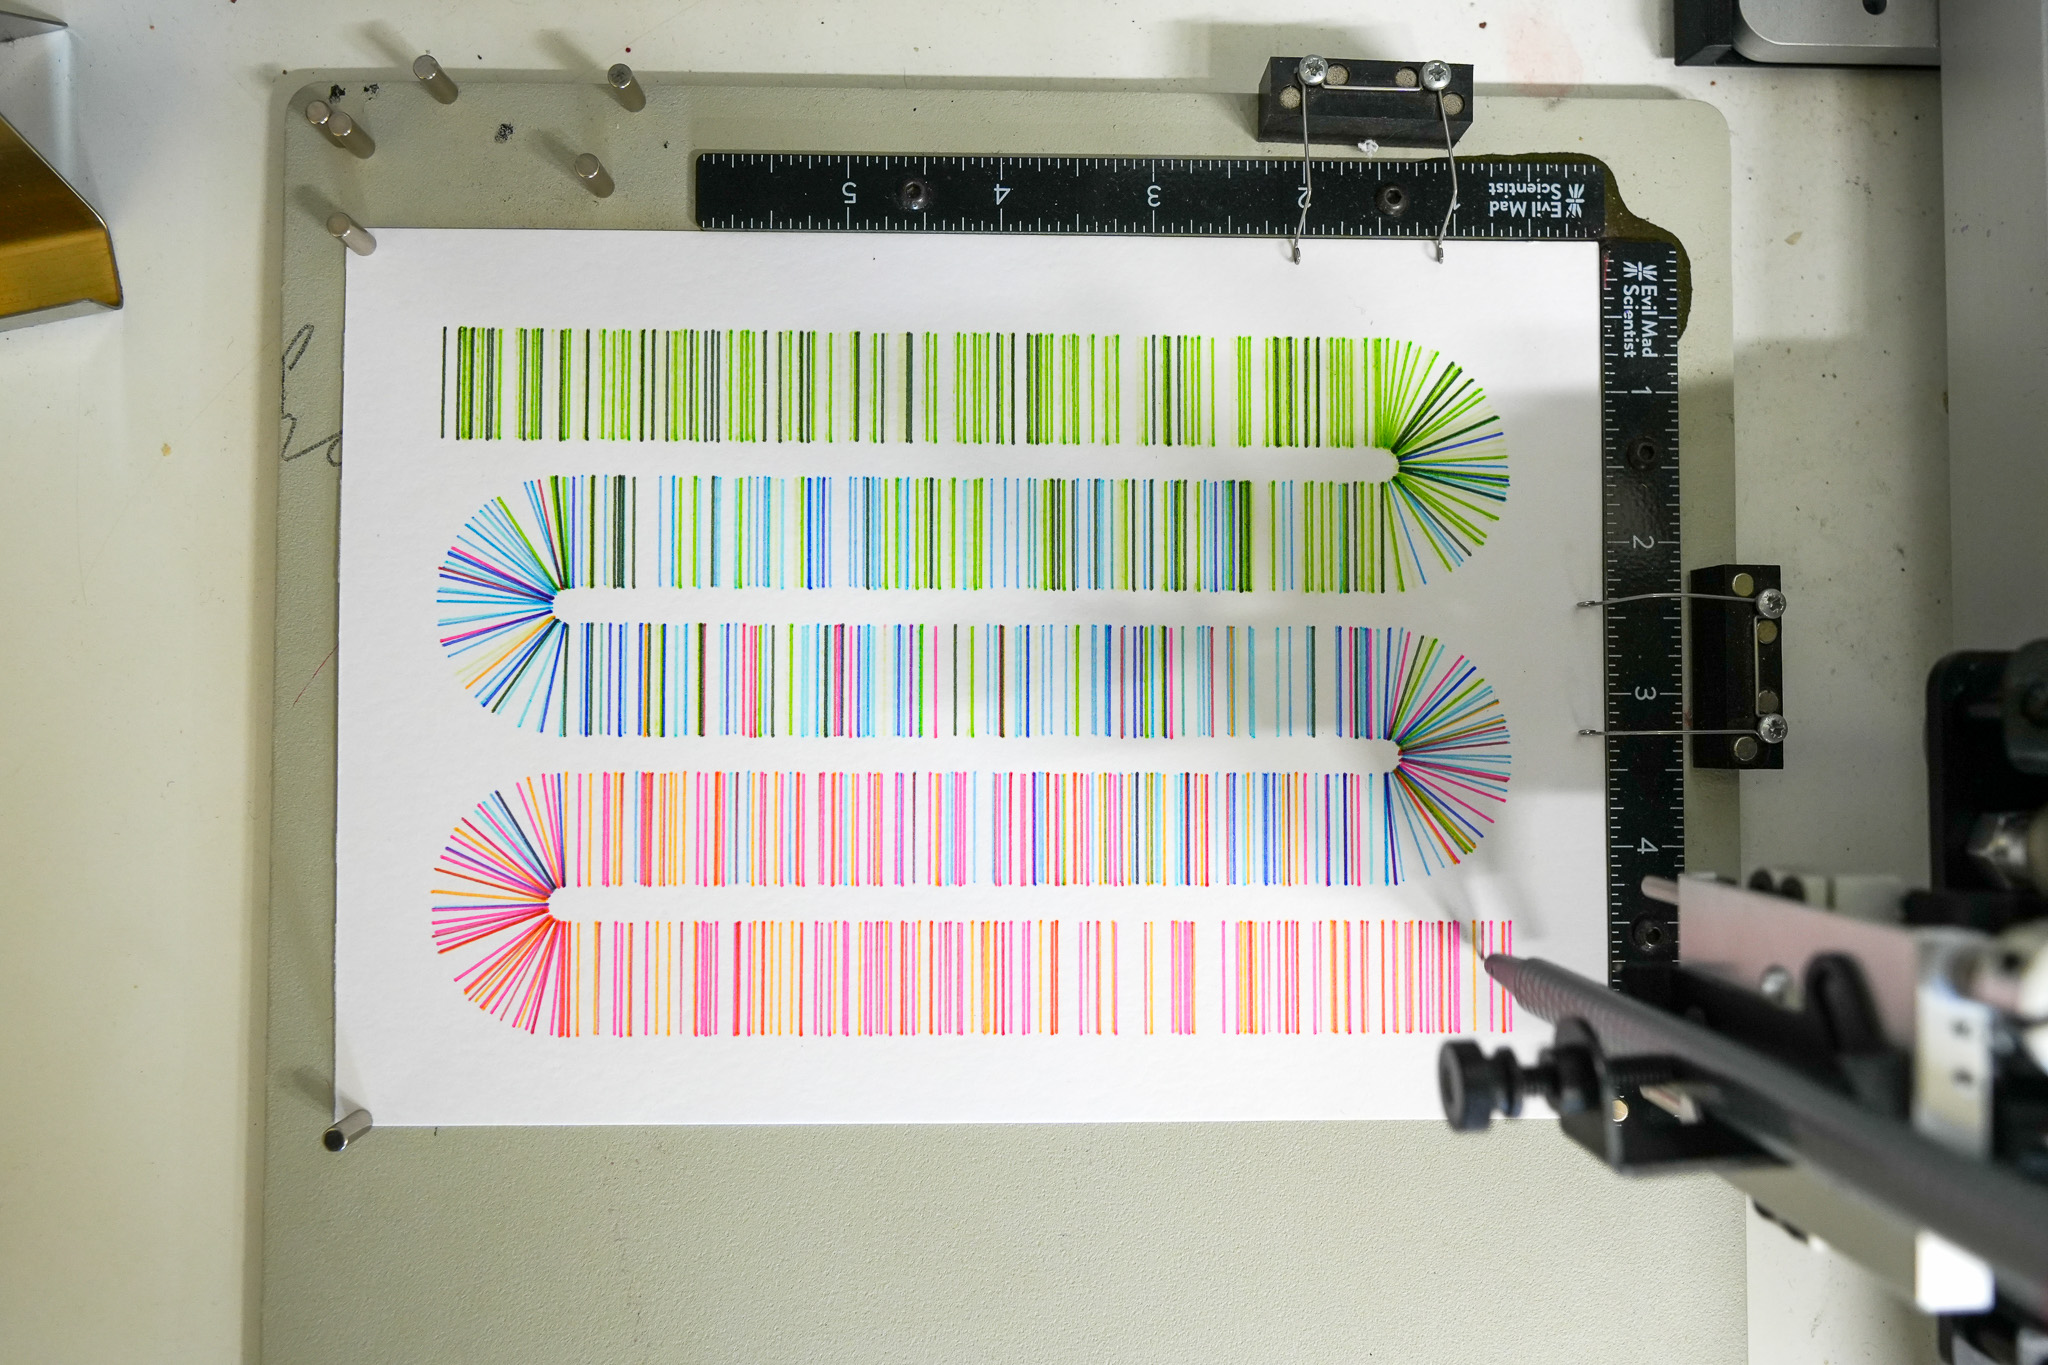 Evil Mad
Scientist
1 2 3 4 5
Evil Mad
Scientist
1
2
3
4